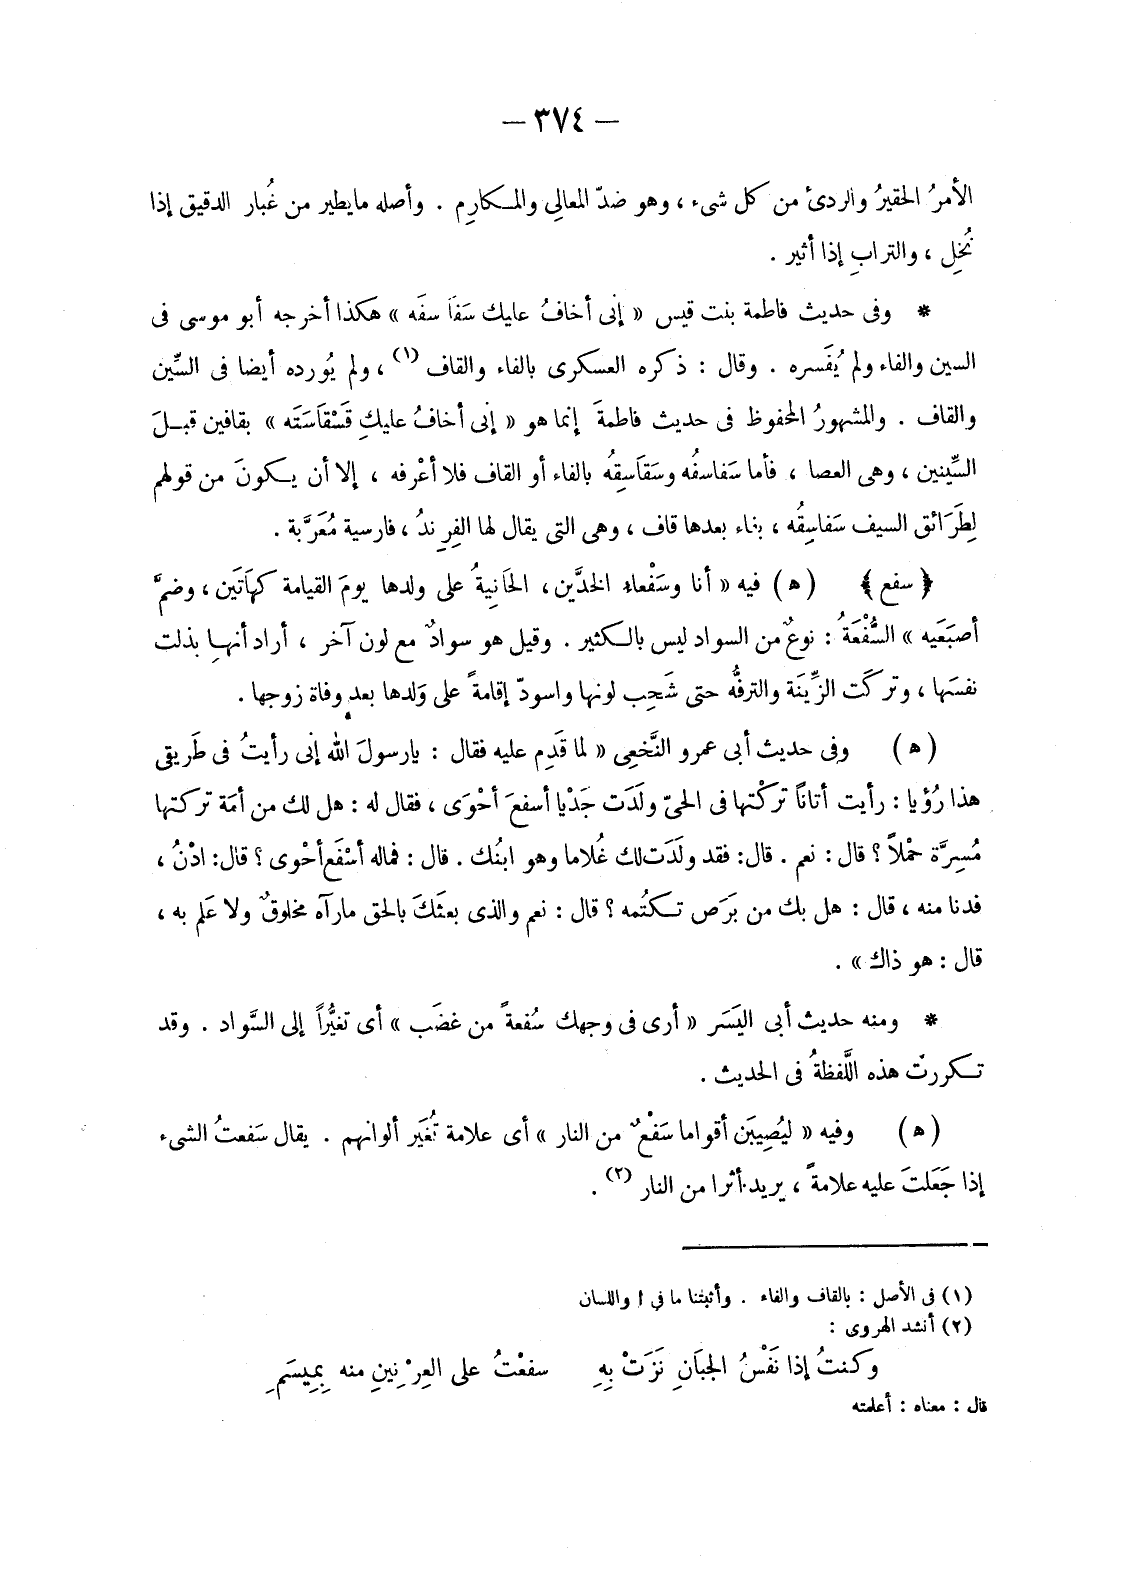 — ٣٧٤ —
الأمرُ الحقيرُ والردىُٔ من كل شىء ، وهو ضدّ المعالِى والمكارِم . وأصله مايطير من غُبار الدقيق إذا
نُخِل ، والترابِ إذا أثير .
* وفى حديث فاطمة بنت قيس « إنى أخافُ عليك سَفَاسفَه » هكذا أخرجه أبو موسى فى
السين والفاء ولم يُفَسره . وقال : ذكره العسكرى بالفاء والقاف (١) ، ولم يُورده أيضا فى السِّين
والقاف . والمشهورُ المحفوظ فى حديث فاطمةَ إنما هو « إنى أخافُ عليكِ قَسْقَاسَتَه » بقافين قبلَ
السِّينين ، وهى العصا ، فأما سَفاسفُه وسَقَاسِقُه بالفاء أو القاف فلا أعْرفه ، إلا أن يكونَ من قولهم
لِطَرَائق السيف سَفاسِقُه ، بفاء بعدها قاف ، وهى التى يقال لها الفِرِندُ ، فارسية مُعَرَّبة .
﴿ سفع ﴾ (ه) فيه « أنا وسَفْعاءِ الخدَّين، الحَانِيةُ على ولدها يومَ القيامة كهَاتَين ، وضمَّ
أصبَعَيه » السُّفْعَةُ : نوعٌ من السواد ليس بالكثير . وقيل هو سوادٌ مع لون آخر ، أراد أنها بذلت
نفسَها ، وتركَت الزِّينَة والترفُّه حتى شَحِب لونها واسودّ إقامةً على وَلدها بعد وفاة زوجها .
(ه) وفى حديث أبى عمرو النَّخعِى « لما قَدِم عليه فقال : يارسولَ الله إنى رأيتُ فى طَريقى
هذا رُؤيا : رأيت أتاناً تركْتها فى الحىّ ولَدَت جَدْيا أسفعَ أحْوَى ، فقال له : هل لك من أمَة تركتها
مُسِرَّة حْملاً ؟ قال : نعم . قال: فقد ولَدَت لك غُلاما وهو ابنُك . قال : فماله أسْفَع أحْوى ؟ قال: ادْنُ ،
فدنا منه ، قال : هل بك من بَرَص تكتُمه ؟ قال : نعم والذى بعثَكَ بالحق مارآه مخلوقٌ ولا عَلم به ،
قال : هو ذاك » .
* ومنه حديث أبى اليَسَر « أرى فى وجهك سُفعةً من غضَب » أى تغيُّراً إلى السَّواد . وقد
تكررتْ هذه اللَّفظةُ فى الحديث .
(ه) وفيه « ليُصِيبَن أقواما سَفْعٌ من النار » أى علامة تُغَير ألوانهم . يقال سَفعتُ الشىء
إذا جَعَلتَ عليه علامةً ، يريد أثرا من النار (٢) .
(١) فى الأصل : بالقاف والفاء . وأثبتنا ما في ا واللسان
(٢) أنشد الهروى :
وكنتُ إذا نَفْسُ الجبَانِ نَزَتْ بِهِ سفعْتُ على العِرْنِينِ منه بِمِيسَمِ
قال : معناه : أعلمته